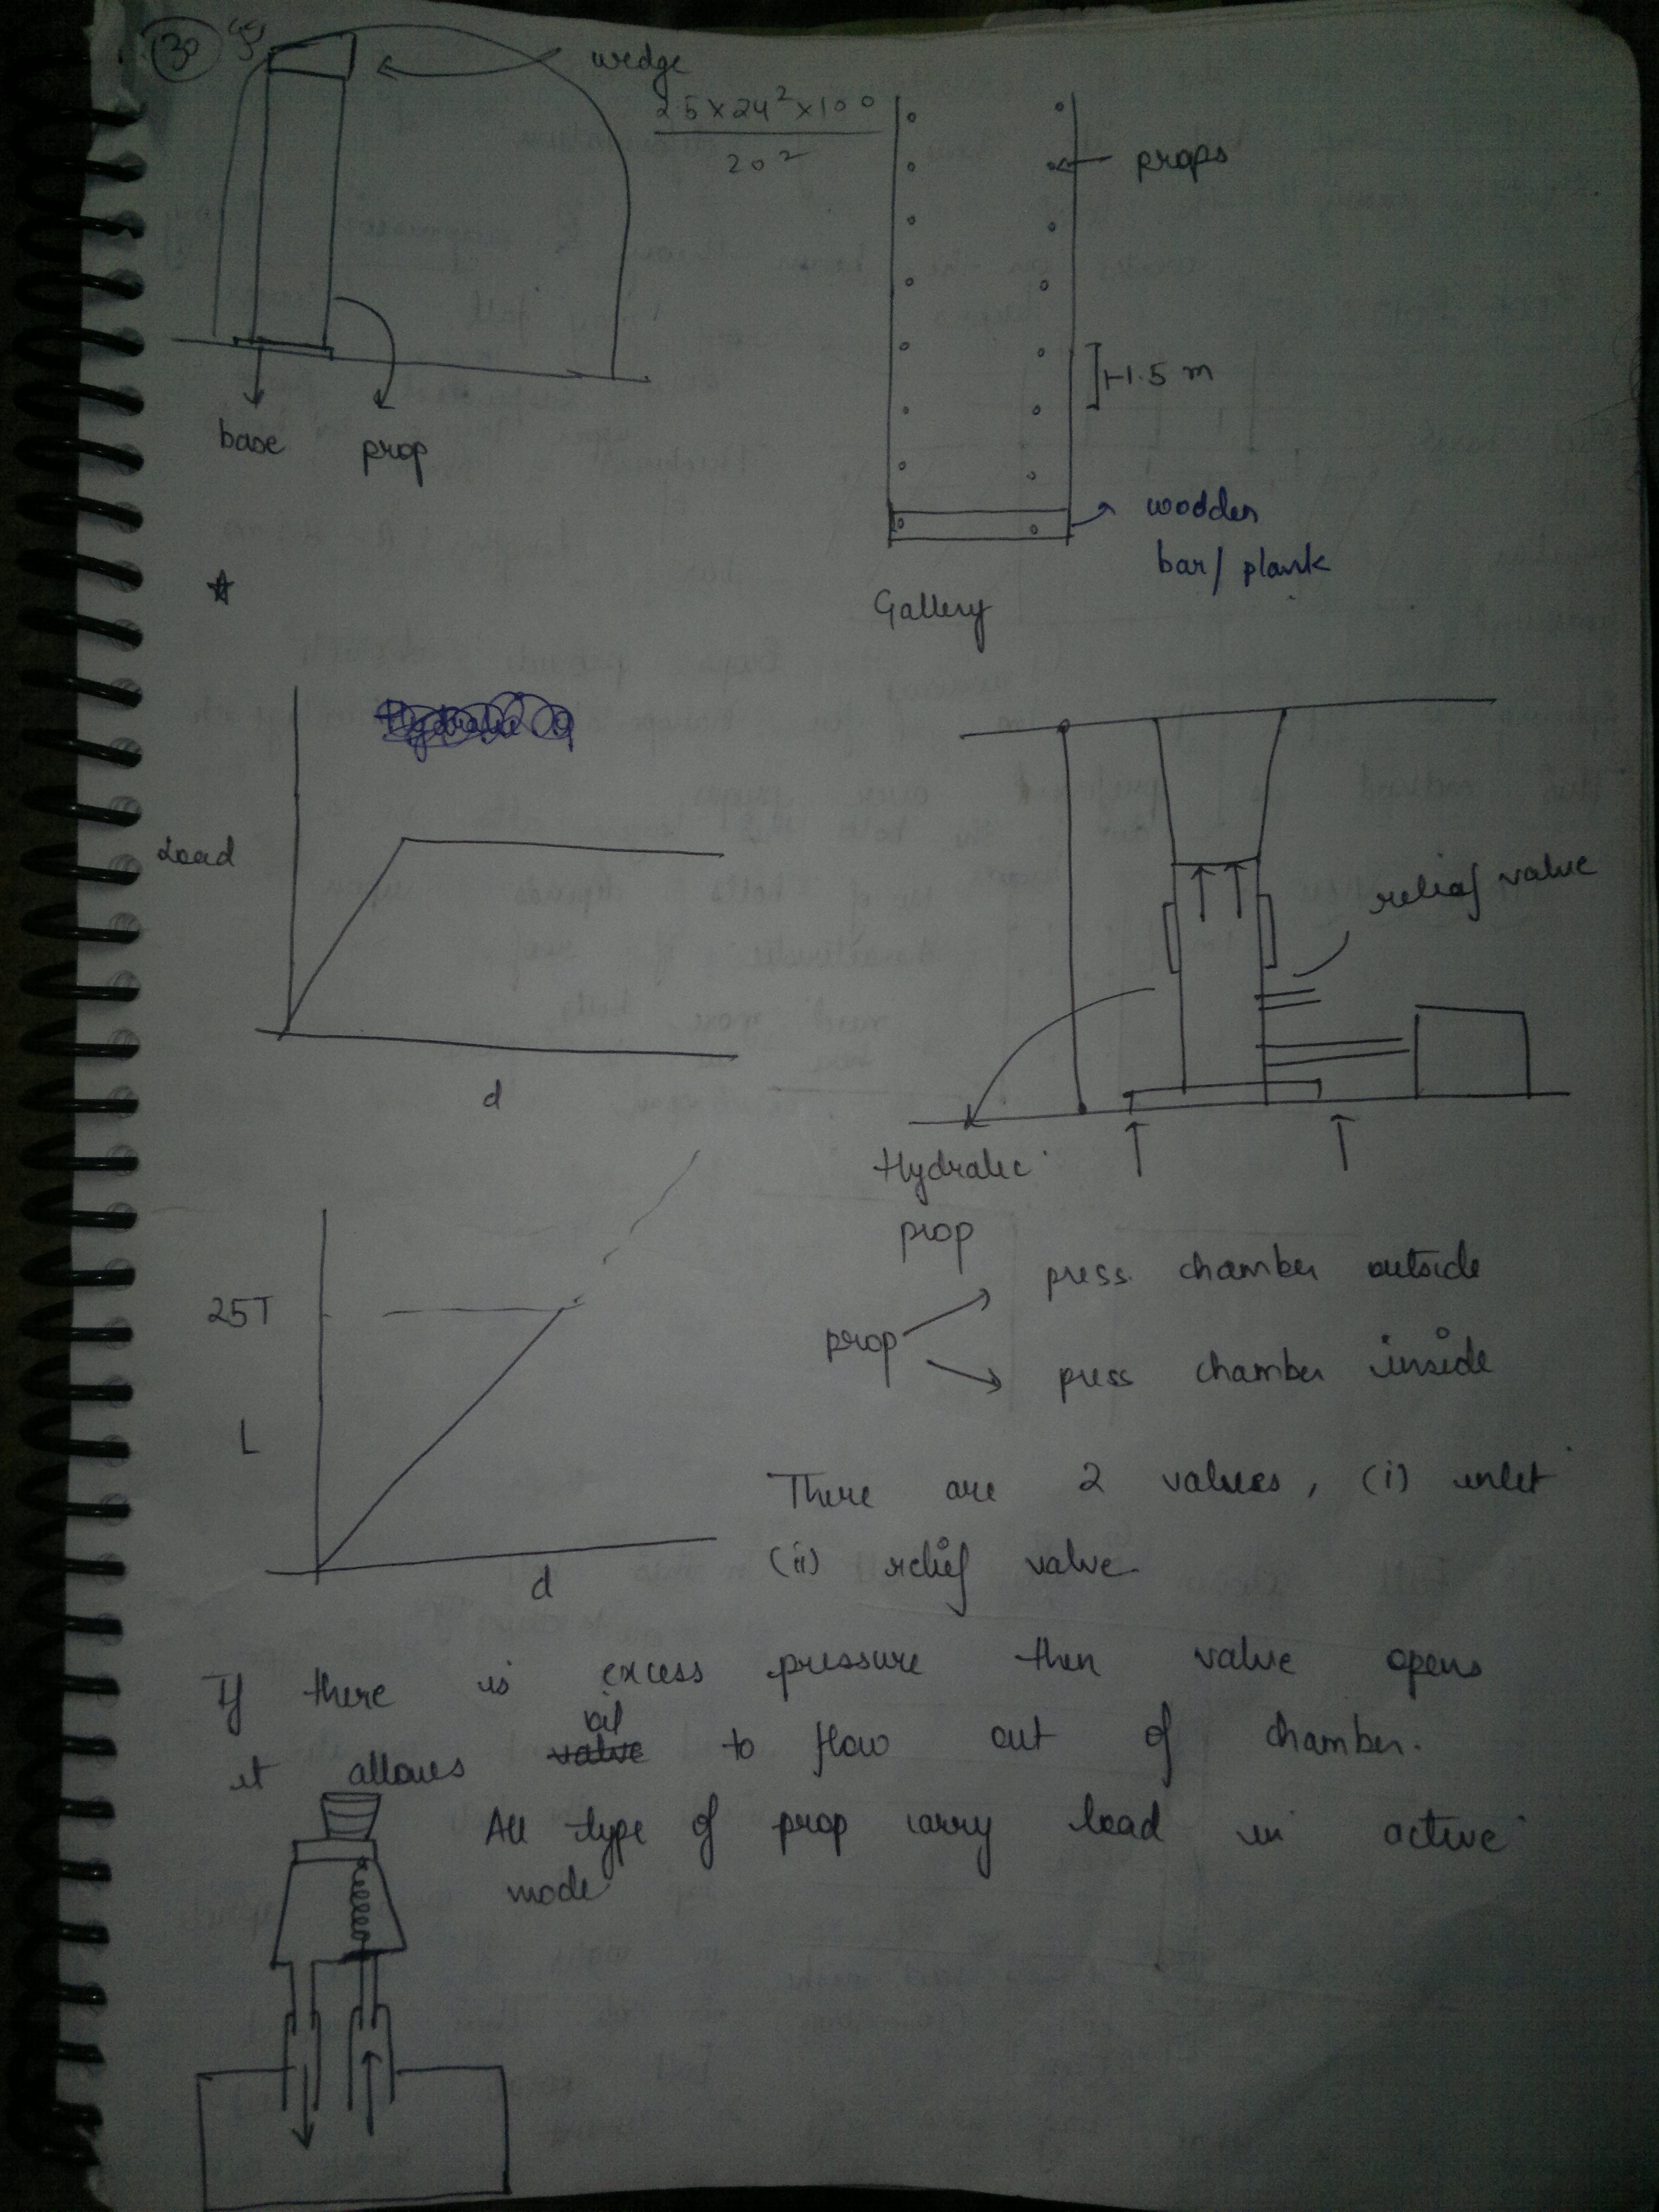 30
wedge
25x24²x100
20²
props
1.5 m
base prop
wooden
bar/ plank
Gallery
Load
relief value
d
Hydralic
prop
25T
press. chamber outside
prop
press chamber inside
L
There are 2 values, (i) inlet
(ii) relief valve.
d
If there is excess pressure then value opens
it allows oil to flow out of chamber.
All type of prop carry load in active
mode